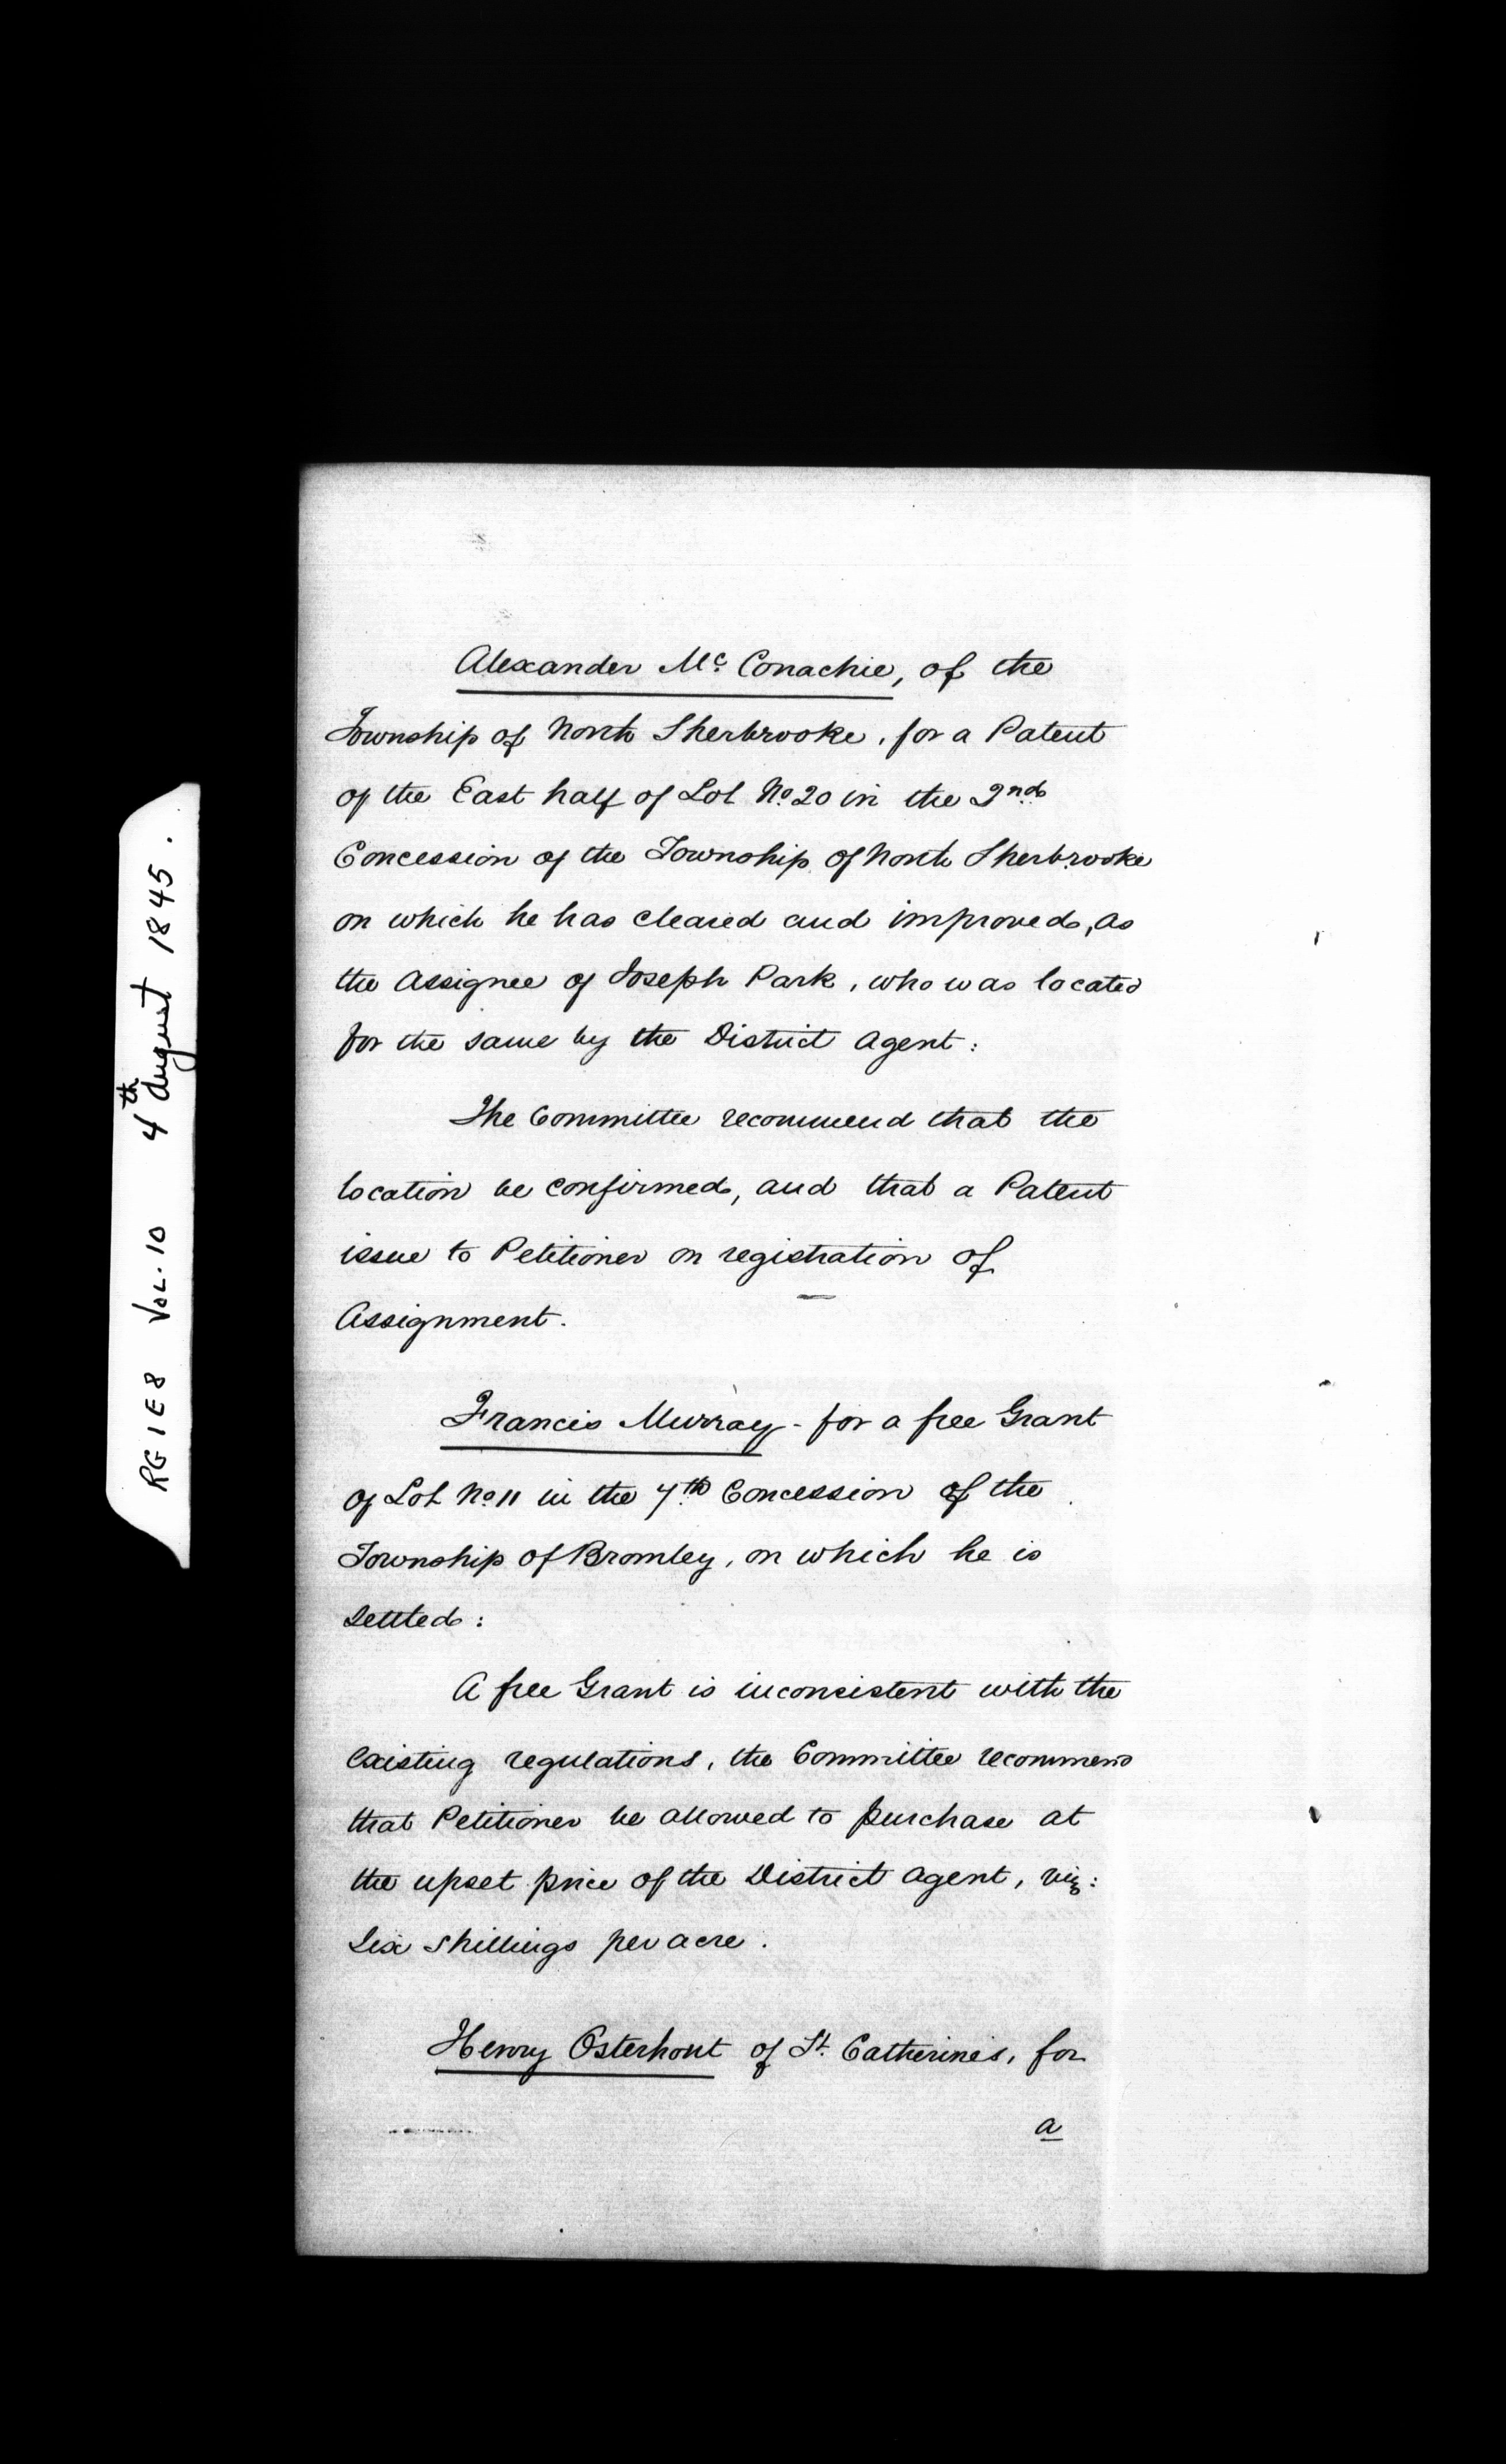 Alexander Mc. Conachie, of the
Township of North Sherbrooke, for a Patent
of the East half of Lot No. 20 in the 2nd
Concession of the Township of North Sherbrooke
on which he has cleared and improved, as
the Assignee of Joseph Park, who was located
for the same by the District Agent:
The Committee recommend that the
location be confirmed, and that a Patent
issue to Petitioner on registration of
Assignment.
Francis Murray - for a free Grant
of Lot No. 11 in the 7th Concession of the
Township of Bromley, on which he is
settled:
A free Grant is inconsistent with the
existing regulations, the Committee recommend
that Petitioner be allowed to purchase at
the upset price of the District Agent, viz:
Six Shillings per acre.
Henry Osterhout of St. Catherine's, for
a
RG 1 E 8 VOL. 10 4th August 1845.